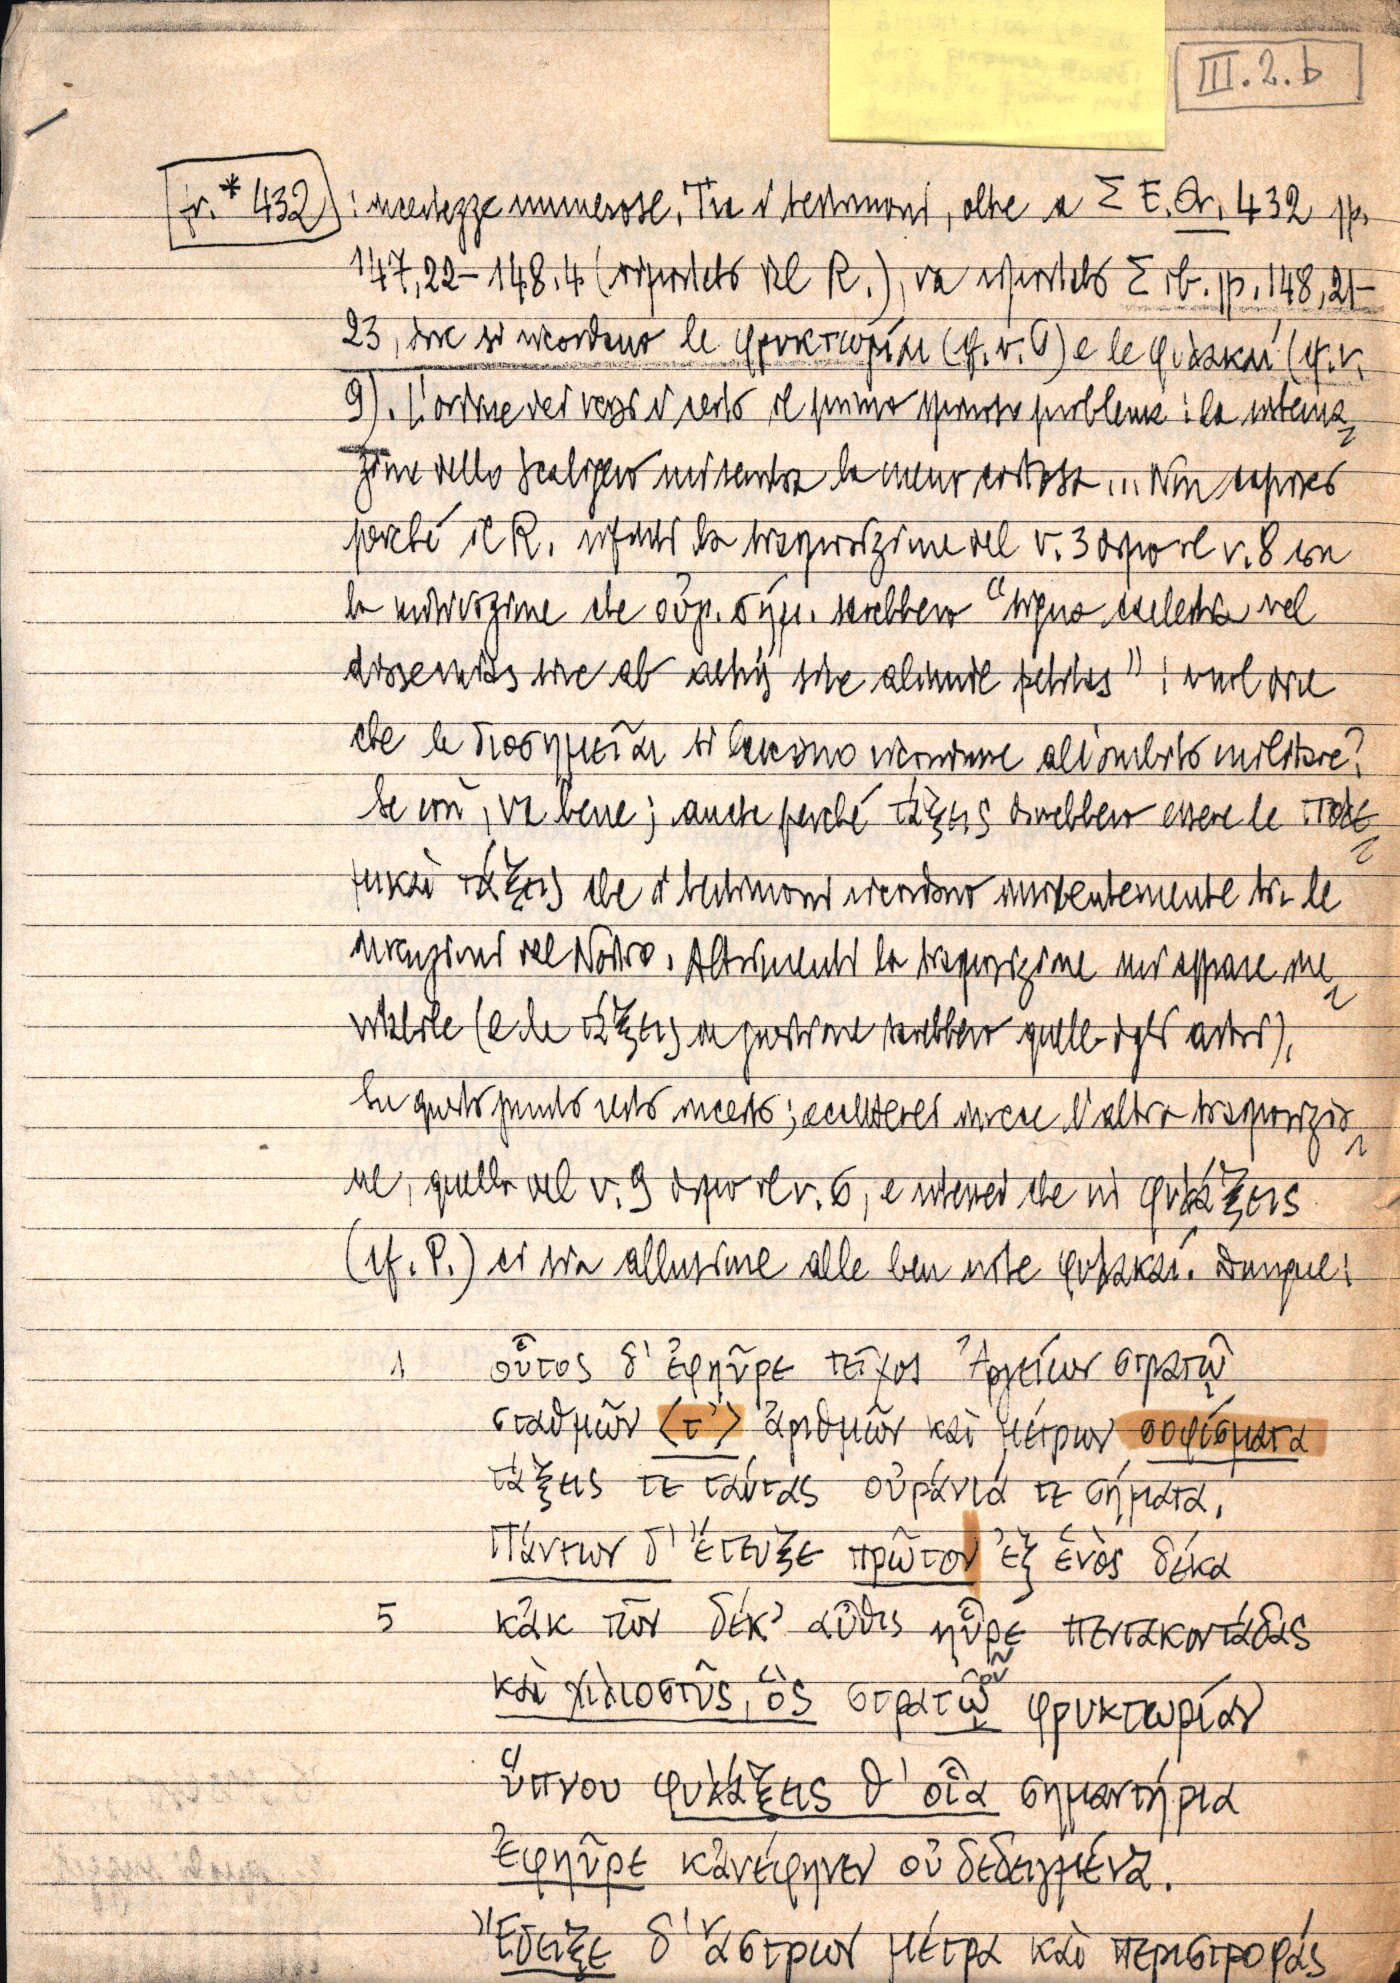 III.2.b
fr. *432: incertezze numerose. Tra i testimoni, oltre a Σ E. Or. 432 pp.
147,22–148,4 (riportato dal R.), va riportato Σ ib. pp. 148,21–
23, dove si ricordano le φρυκτωρίαι (cf. v. 6) e le φυλακαί (cf. v.
9). L'ordine dei versi è certo il primo spinoso problema: la
zione dello Scaligero mi sembra la meno ... Non capisco
perché il R. rifiuti la trasposizione del v. 3 dopo il v. 8 con
la motivazione che οὐρ. σήμ. sarebbero "signa caelestia vel
sive ab astris sive aliunde petitas": vuol dire
che le διοσημεῖαι si lasciano ricondurre all'ambito militare?
Se così, va bene; anche perché τάξεις dovrebbero essere le πολε
μικαὶ τάξεις che i testimoni ricordano insistentemente tra le
invenzioni del Nostro. Altrimenti la trasposizione mi appare ine
vitabile (e le τάξεις in questione sarebbero quelle degli astri).
Su questo punto resto incerto; accetterei invece l'altra trasposizio
ne, quella del v. 9 dopo il v. 6, e riterrei che in φυλάξεις
(cf. P.) ci sia allusione alle ben note φυλακαί. Dunque:
1 οὗτος δ' ἐφηῦρε τεῖχος Ἀργείων στρατῷ
σταθμῶν ⟨τ'⟩ ἀριθμῶν καὶ μέτρων σοφίσματα
τάξεις τε ταύτας οὐράνιά τε σήματα.
Πάντων δ' ἔτευξε πρῶτον ἐξ ἑνὸς δέκα
5 κἀκ τῶν δέκ' αὖθις ηὗρε πεντακοντάδας
καὶ χιλιοστῦς, ὃς στρατῷ φρυκτωρίαν
οῦ
ὕπνου φυλάξεις θ' οἷα σημαντήρια
ἐφηῦρε κἀνέφηνεν οὐ δεδειγμένα.
Ἔδειξε δ' ἄστρων μέτρα καὶ περιστροφάς